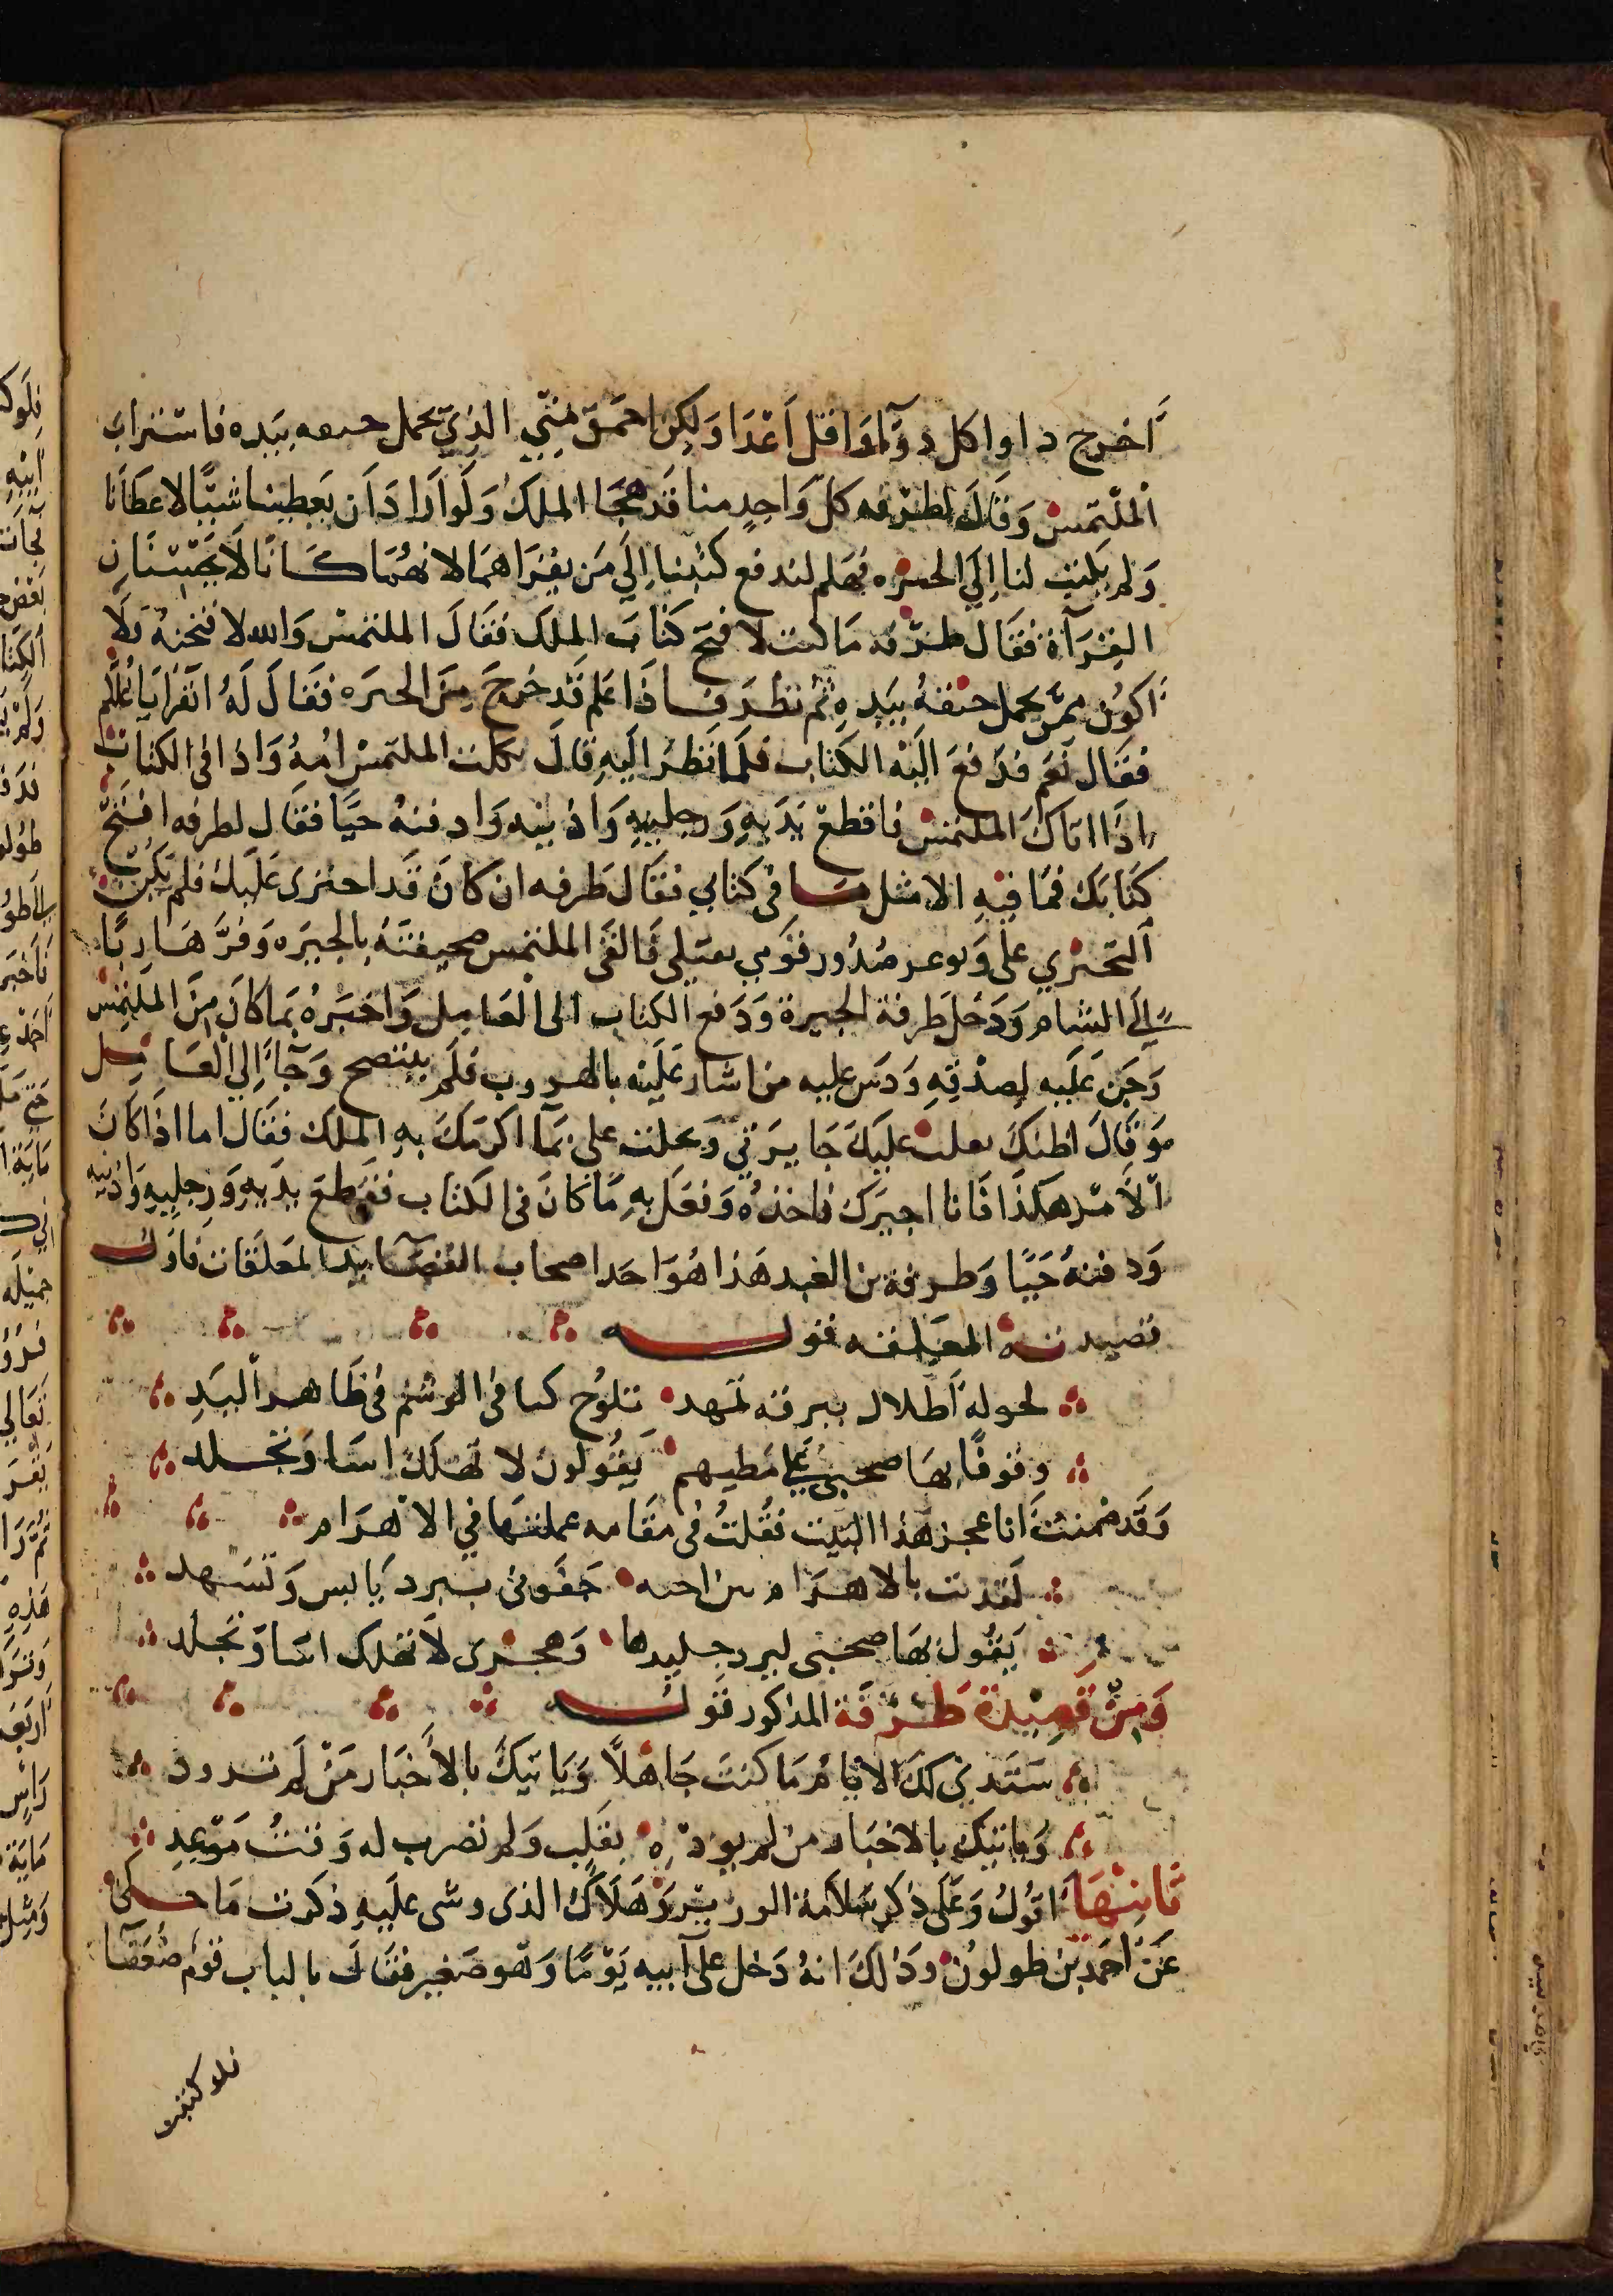 أخرج داوا كل دوآا واقتل أعدا ولكن احمق مني الذي يحمل حتفه بيده فاستراب
الملتمس وقال لطرفه كل واحد منا قد هجا الملك ولو اراد ان يعطينا شيا لاعطانا
ولم يكتب لنا إلي الحيره فهلم لندفع كتبنا إلي من يقراهما لانهما كانا لا يحسنان
القرآة فقال طرفه ما كنت لافتح كتاب الملك فقال الملتمس والله لافتحنه ولا
أكون ممن يحمل حتفه بيده ثم نظر فاذا غلام قد خرج من الحيره فقال له اتقرا يا غلام
فقال نعم فدفع اليه الكتاب فلما نظر اليه قال ثكلت الملتمس امه واذا في الكتاب
اذا اتاك الملتمس فاقطع يديه ورجليه واذنيه وادفنه حيا فقال لطرفه افتح
كتابك فما فيه الا مثل ما في كتابي فقال طرفه ان كان قد اجترى عليك فلم يكن
التجري علي ويوغر صدور قومي بقتلي فالقى الملتمس صحيفته بالحيره وفر هاربا
إلى الشام ودخل طرفة الحيرة ودفع الكتاب الى العامل واخبره بما كان من الملتمس
وحن عليه لصدقه ودس عليه من اشار عليه بالهروب فلم ينتصح وجآ إلي العامل
وقال اظنك جايزتي وبخلت علي بمآ اكرمك به الملك فقال اما اذا كان
الامر هكذا فانا اجيزك فاخذه وفعل به ما كان في الكتاب فقطع يديه ورجليه واذنيه
ودفنه حيا وطرفة بن العبد هذا هو احد اصحاب القصآيد المعلقات فاول
قصيدته المعلقه قوله
لخوله أطلال ببرقه ثهمد تلوح كما في الوشم في ظاهر اليد
وقوفا بها صحبي علي مطيهم يقولون لا تهلك اسا وتجلد
وقد ضمنت انا عجز هذا البيت فقلت في مقامه عملتها في الاهرام
لقد بت بالاهرام من احبه جفوني ببرد يابس وتسهد
يقول بها صحبي لبرد جليدها وهجرى لا تهلك اسا وتجلد
ومن قصيدة طرفة المذكور قوله
ستبدي لك الايام ما كنت جاهلا وياتيك بالأخبار من لم تزود
وياتيك بالاخبار من لم بقلب ولم تضرب له وقت موعد
ثامنها اقول وعلى ذكر سلامة الوزير وهلاك الذى وشى عليه ذكرت ما حكى
عن احمد بن طولون وذالك انه دخل على ابيه يوما وهو صغير فقال بالباب قوم ضعفآ
فلو كتبت